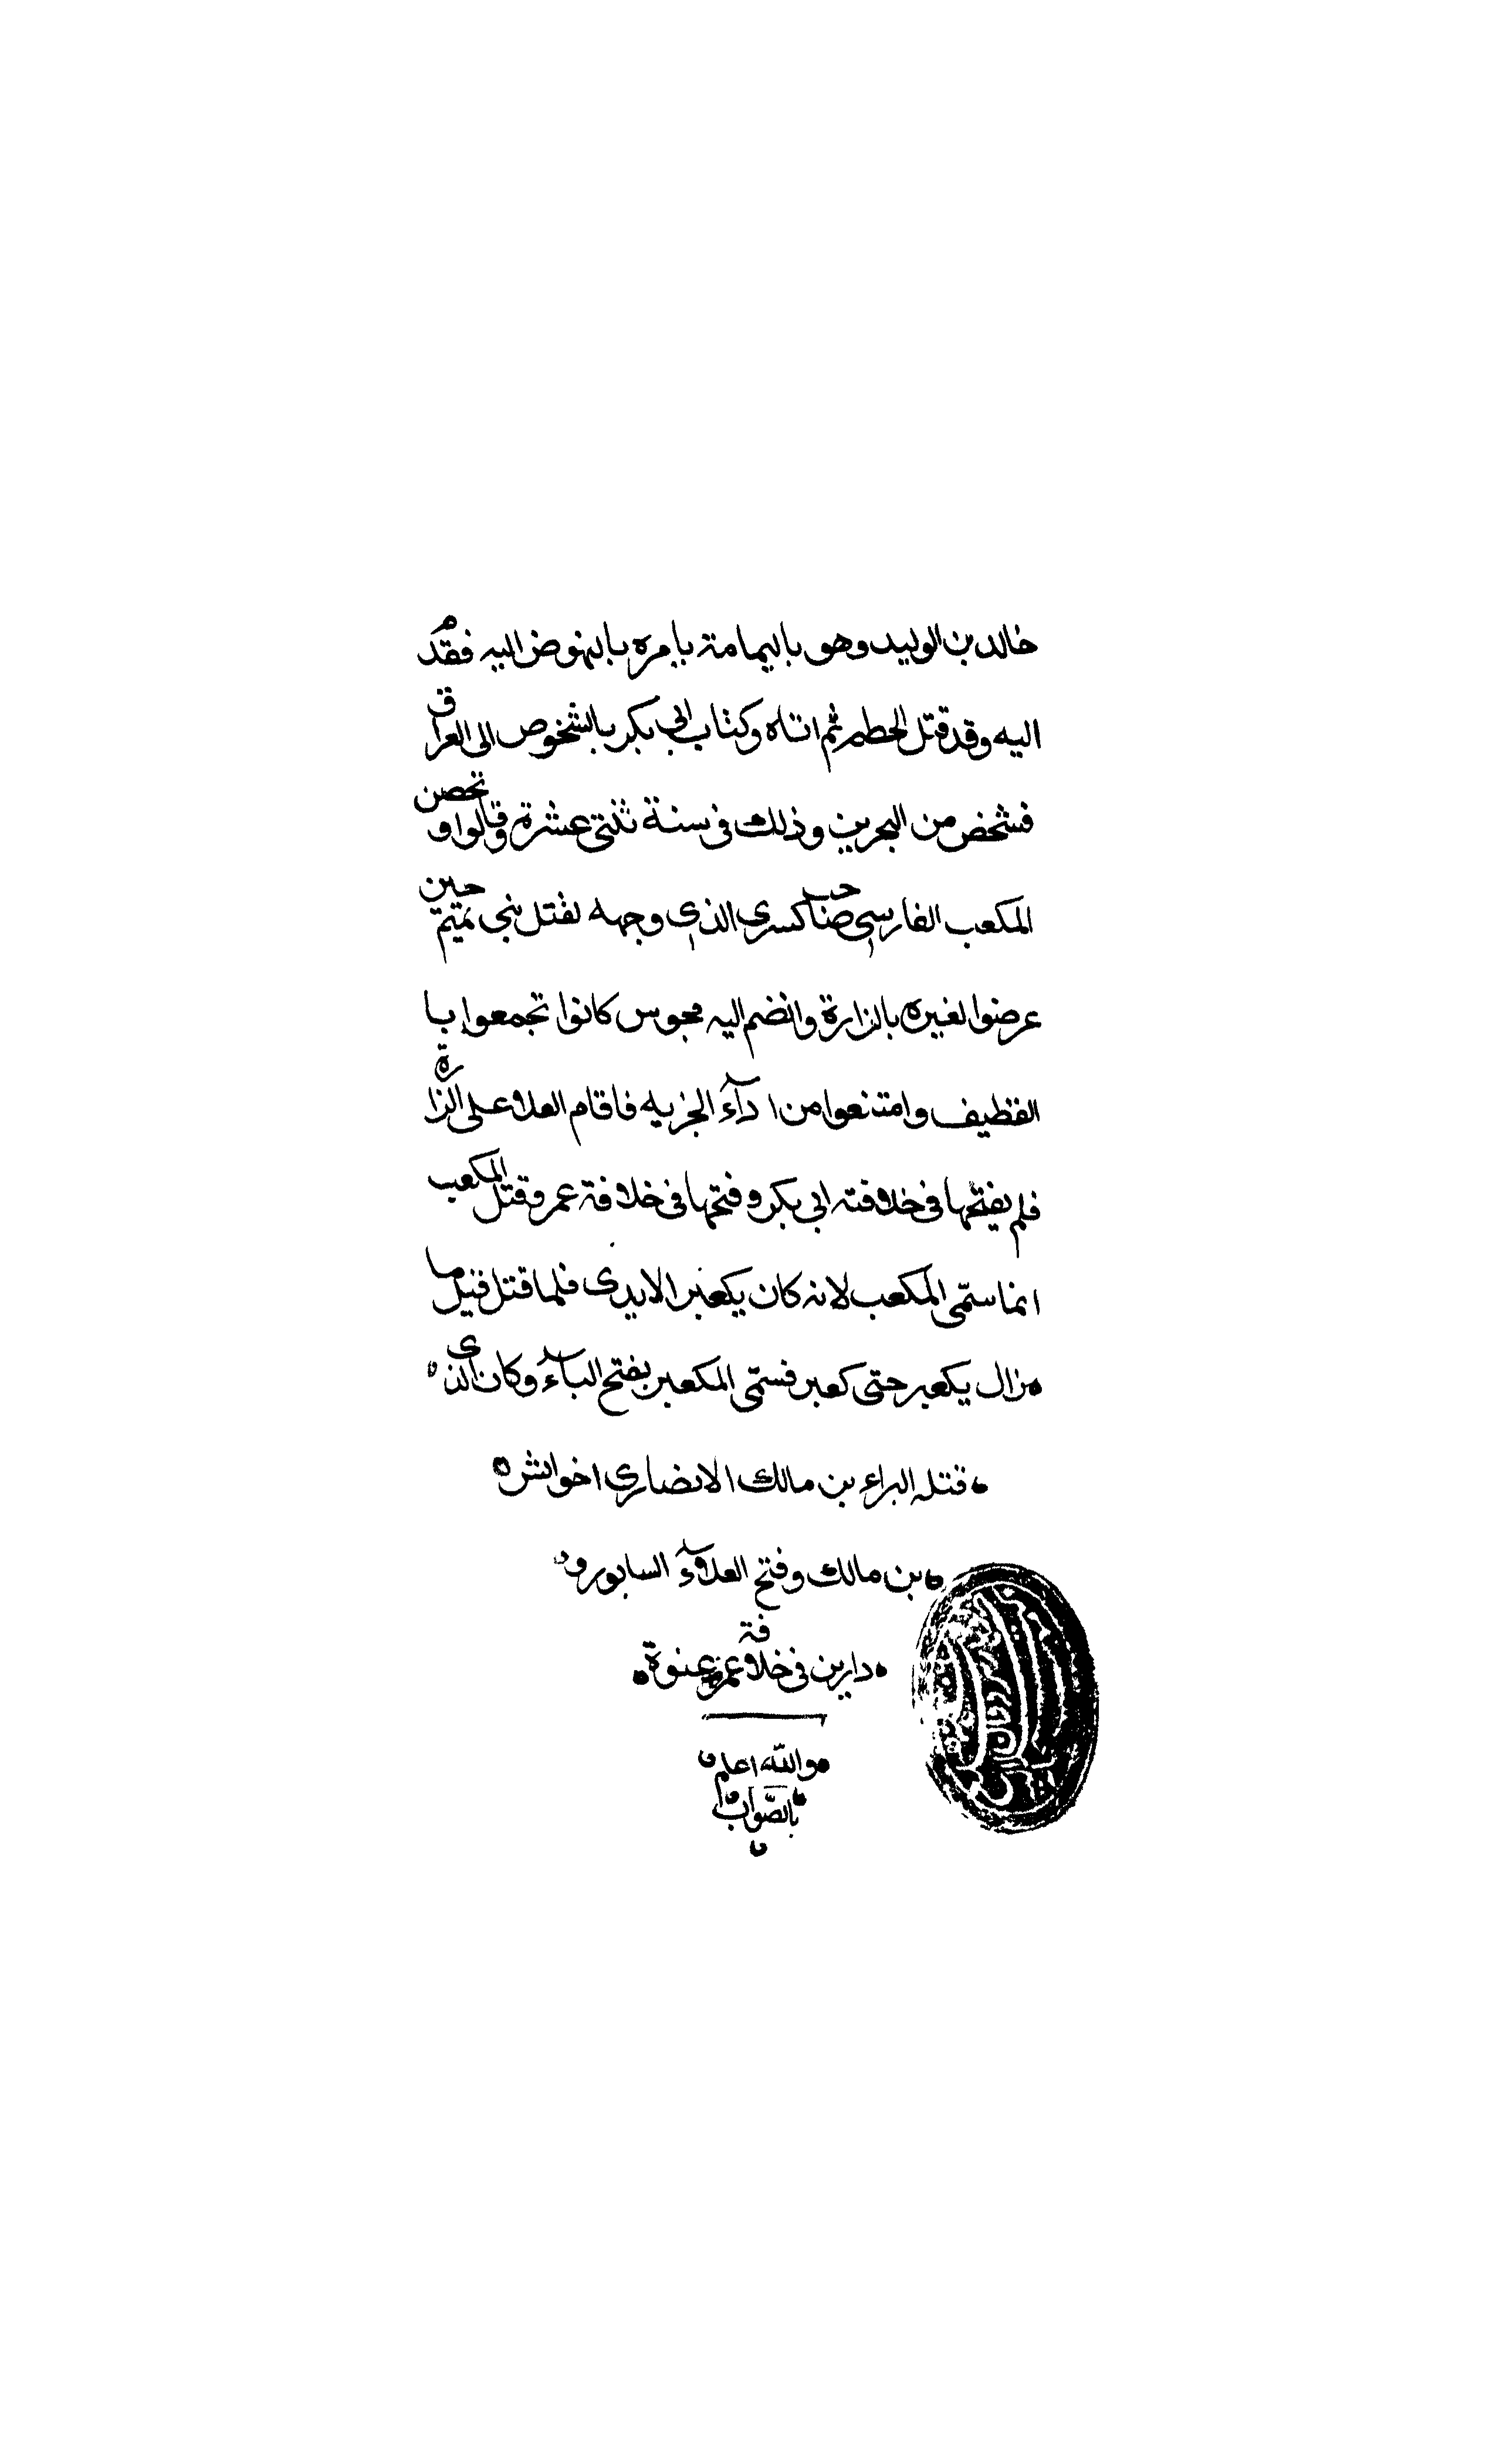 خالد بن الوليد وهو باليمامة يامره بالنهوض اليه فقدم
اليه وقد قتل الحطم ثم اتاه وكتاب ابي بكر بالشخوص الى العراق
فشخص من البحرين وذلك فى سنة ثنتى عشرة وقالوا وتحصن
المكعب الفارسي صاحب كسرى الذي وجهه لقتل بني تميم حين
عرضوا لغيره بالزارة وانضم اليه مجوس كانوا تجمعوا با
القظيف وامتنعوا من ادآء الجزيه فاقام العلا على الزارة
فلم يفتحها فى خلافته ابي بكر وفتحها فى خلافة عمر وقتل المكعب
انما سمّى المكعب لانه كان يكعبر الايدى فلما قتل قيل ما
زال يكعبر حتى كعبر فسمّى المكعبر بفتح الباء وكان الذى
قتله البراء بن مالك الانصاري اخو انس
بن مالك وفتح العلآء السابور و
دارين فى خلافة عمر عنوة
والله اعلم
بالصّواب